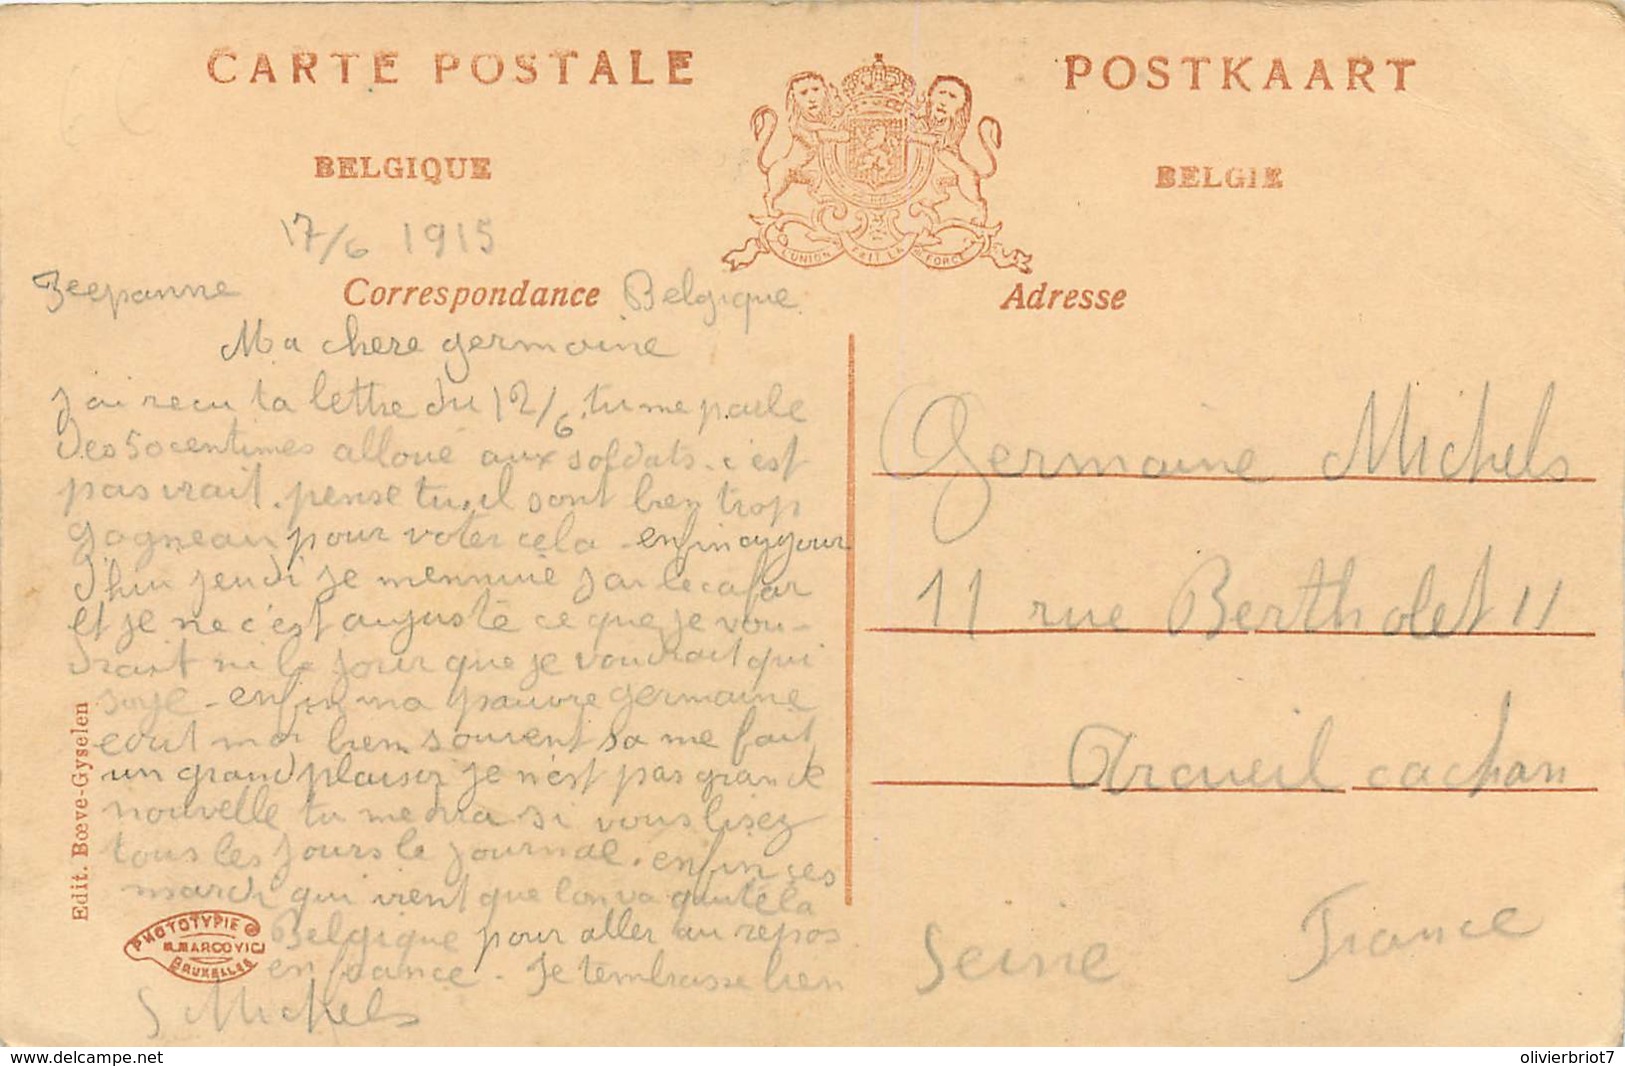 CARTE POSTALE
POSTKAART
BELGIQUE
BELGIE
L'UNION FAIT LA FORCE
17/6 1915
Zeepanne
Correspondance
Belgique
Adresse
Ma chere germaine
j'ai recu ta lettre du 12/6. tu me parle
des 50 centimes alloué aux soldats. c'est
pas vrait. pense tu. il sont bien trop
gagneau pour voter cela - enfin aujour
d'hui jeudi je mennuie j'ai le cafar
et je ne c'est au juste ce que je vou-
drait ni le jour que je voudrait qui
soye - enfin ma pauvre germaine
ecrit moi bien souvent sa me fait
un grand plaisir je n'est pas grande
nouvelle tu me dira si vous lisez
tous les jours le journal. enfin ces
mardi qui vient que l'on va quité la
Belgique pour aller au repos
en france. Je t'embrasse bien
S Michels
Germaine Michels
11 rue Bertholet 11
Arcueil cachan
Seine France
Edit. Bœve-Gyselen
PHOTOTYPIE
MARCOVICI
BRUXELLES
www.delcampe.net
olivierbriot7